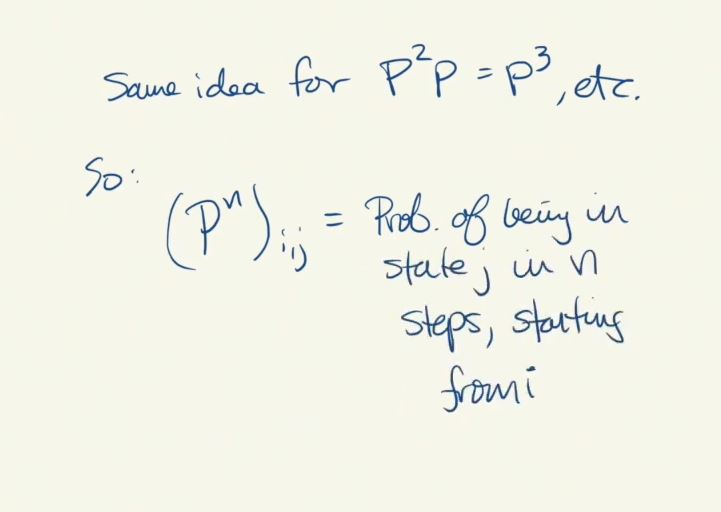 Same idea for P²P = P³, etc.
So:
(Pⁿ)i,j = Prob. of being in
state j in n
steps, starting
from i